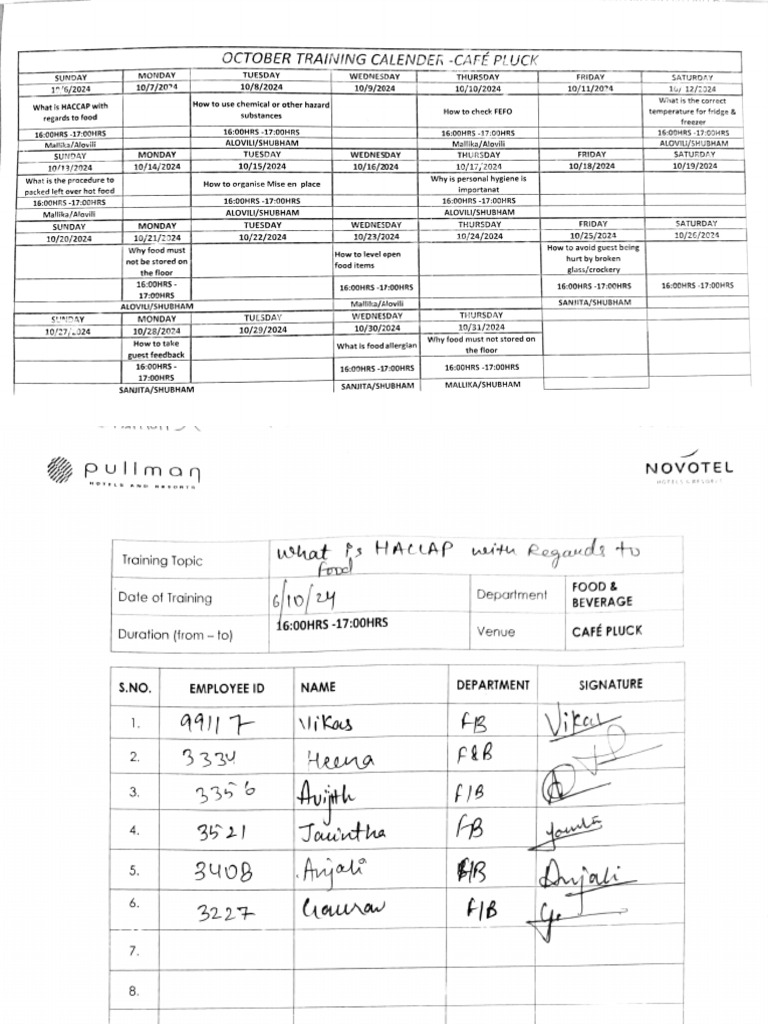 OCTOBER TRAINING CALENDER -CAFÉ PLUCK
SUNDAY MONDAY TUESDAY WEDNESDAY THURSDAY FRIDAY SATURDAY
10/6/2024 10/7/2024 10/8/2024 10/9/2024 10/10/2024 10/11/2024 10/12/2024
What is HACCAP with regards to food How to use chemical or other hazard substances How to check FEFO What is the correct temperature for fridge & freezer
16:00HRS -17:00HRS 16:00HRS -17:00HRS 16:00HRS -17:00HRS 16:00HRS -17:00HRS
Mallika/Alovili ALOVILI/SHUBHAM Mallika/Alovili ALOVILI/SHUBHAM
SUNDAY MONDAY TUESDAY WEDNESDAY THURSDAY FRIDAY SATURDAY
10/13/2024 10/14/2024 10/15/2024 10/16/2024 10/17/2024 10/18/2024 10/19/2024
What is the procedure to packed left over hot food How to organise Mise en place Why is personal hygiene is importanat
16:00HRS -17:00HRS 16:00HRS -17:00HRS 16:00HRS -17:00HRS
Mallika/Alovili ALOVILI/SHUBHAM ALOVILI/SHUBHAM
SUNDAY MONDAY TUESDAY WEDNESDAY THURSDAY FRIDAY SATURDAY
10/20/2024 10/21/2024 10/22/2024 10/23/2024 10/24/2024 10/25/2024 10/26/2024
Why food must not be stored on the floor How to level open food items How to avoid guest being hurt by broken glass/crockery
16:00HRS -17:00HRS 16:00HRS -17:00HRS 16:00HRS -17:00HRS 16:00HRS -17:00HRS
ALOVILI/SHUBHAM Mallika/Alovili SANJITA/SHUBHAM
SUNDAY MONDAY TUESDAY WEDNESDAY THURSDAY
10/27/2024 10/28/2024 10/29/2024 10/30/2024 10/31/2024
How to take guest feedback What is food allergian Why food must not stored on the floor
16:00HRS -17:00HRS 16:00HRS -17:00HRS 16:00HRS -17:00HRS
SANJITA/SHUBHAM SANJITA/SHUBHAM MALLIKA/SHUBHAM
pullman
HOTELS AND RESORTS
NOVOTEL
HOTELS & RESORTS
Training Topic What is HACCAP with Regards to
food
Date of Training 6/10/24 Department FOOD & BEVERAGE
Duration (from – to) 16:00HRS -17:00HRS Venue CAFÉ PLUCK
S.NO. EMPLOYEE ID NAME DEPARTMENT SIGNATURE
1. 99117 Vikas FB Vikas
2. 3334 Heena F&B
3. 3356 Avijith F/B
4. 3521 Jacintha FB
5. 3408 Anjali F/B Anjali
6. 3227 Gaurav F/B
7.
8.